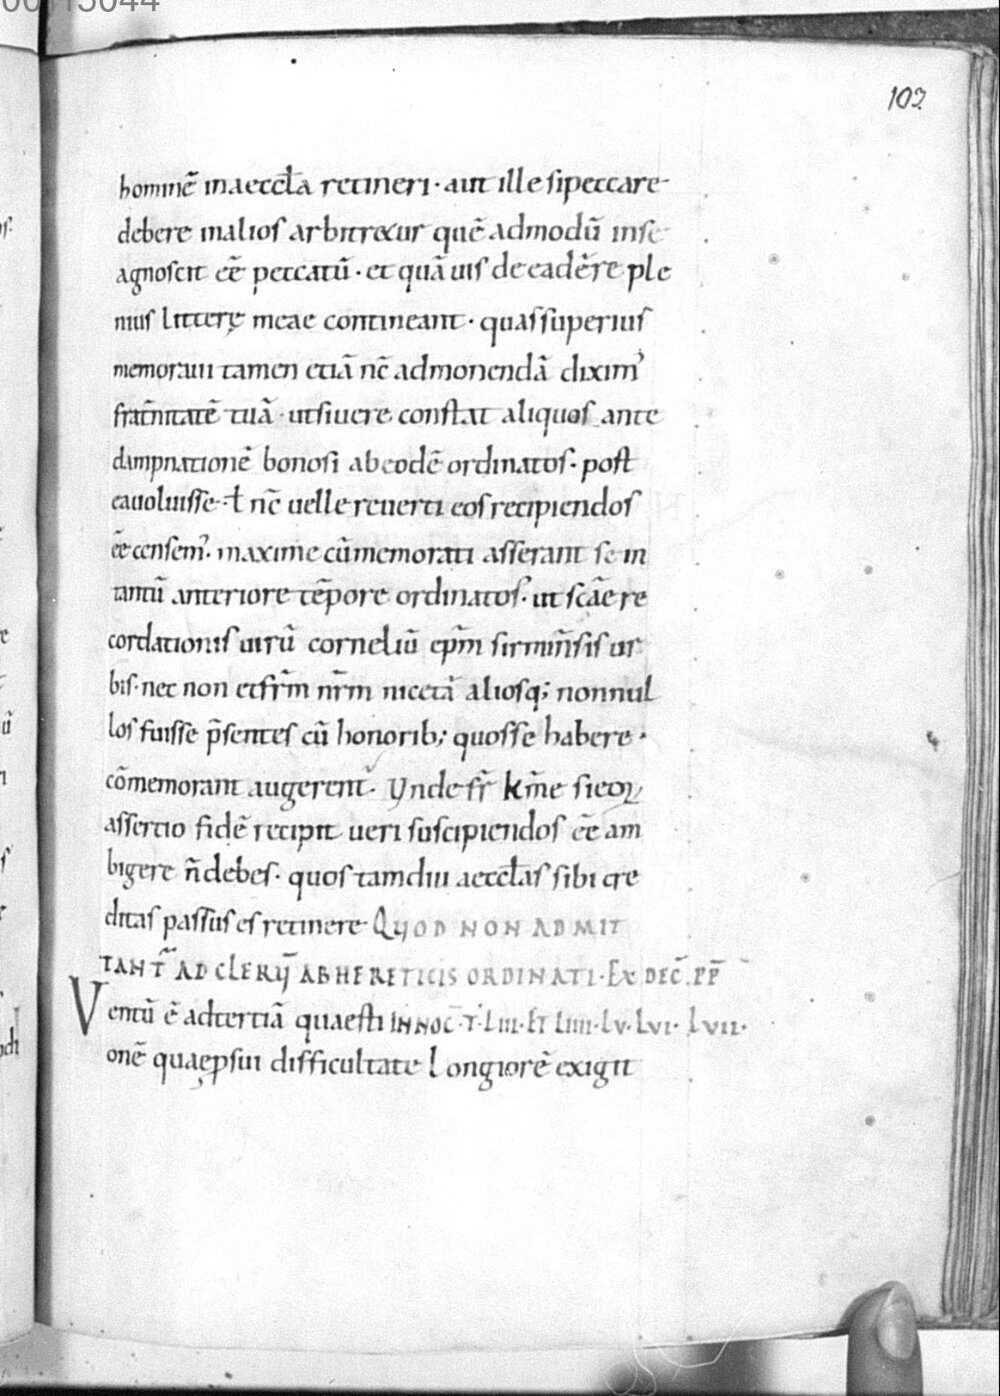 00115044
102
hominē inaeccl̄a retineri · aut ille sipeccare
debere inalios arbitretur quē admodū inse
agnoscit eē peccatū · et quā uis deeadē re ple
nius litterę meae contineant · quassuperius
memoraui tamen etiā nc̄ admonendā dixim᾽
frat̄nitatē tuā · utsiuere constat aliquos ante
dampnationē bonosi abeodē ordinatos · post
eauoluisse · ł nc̄ uelle reuerti eos recipiendos
eē censem᾽ · maxime cūmemorati asserant se in
tantū anteriore tēpore ordinatos · ut scāe re
cordationis uirū corneliū ep̄m sirmin̄sis ur
bis · nec non etfr̄m nr̄m nicetā aliosq; nonnul
los fuisse p̄sentes cū honorib; quosse habere ·
cōmemorant augerent᾽ · Vnde fr̄ km̄e sieoꝝ
assertio fidē recipit ueri suscipiendos eē am
bigere n̄ debes · quos tamdiu aeccl̄as sibi cre
ditas passus es retinere QUOD NON ADMIT
TANT᾽ AD CLERŪ ABHERETICIS ORDINATI · EX DEC̄ . PP̄
Ventū ē adtertiā quaesti INNOC̄ · T̄ · LIII · ET LIIII · LV · LVI · LVII ·
onē quaeꝓsui difficultate longiorē exigit